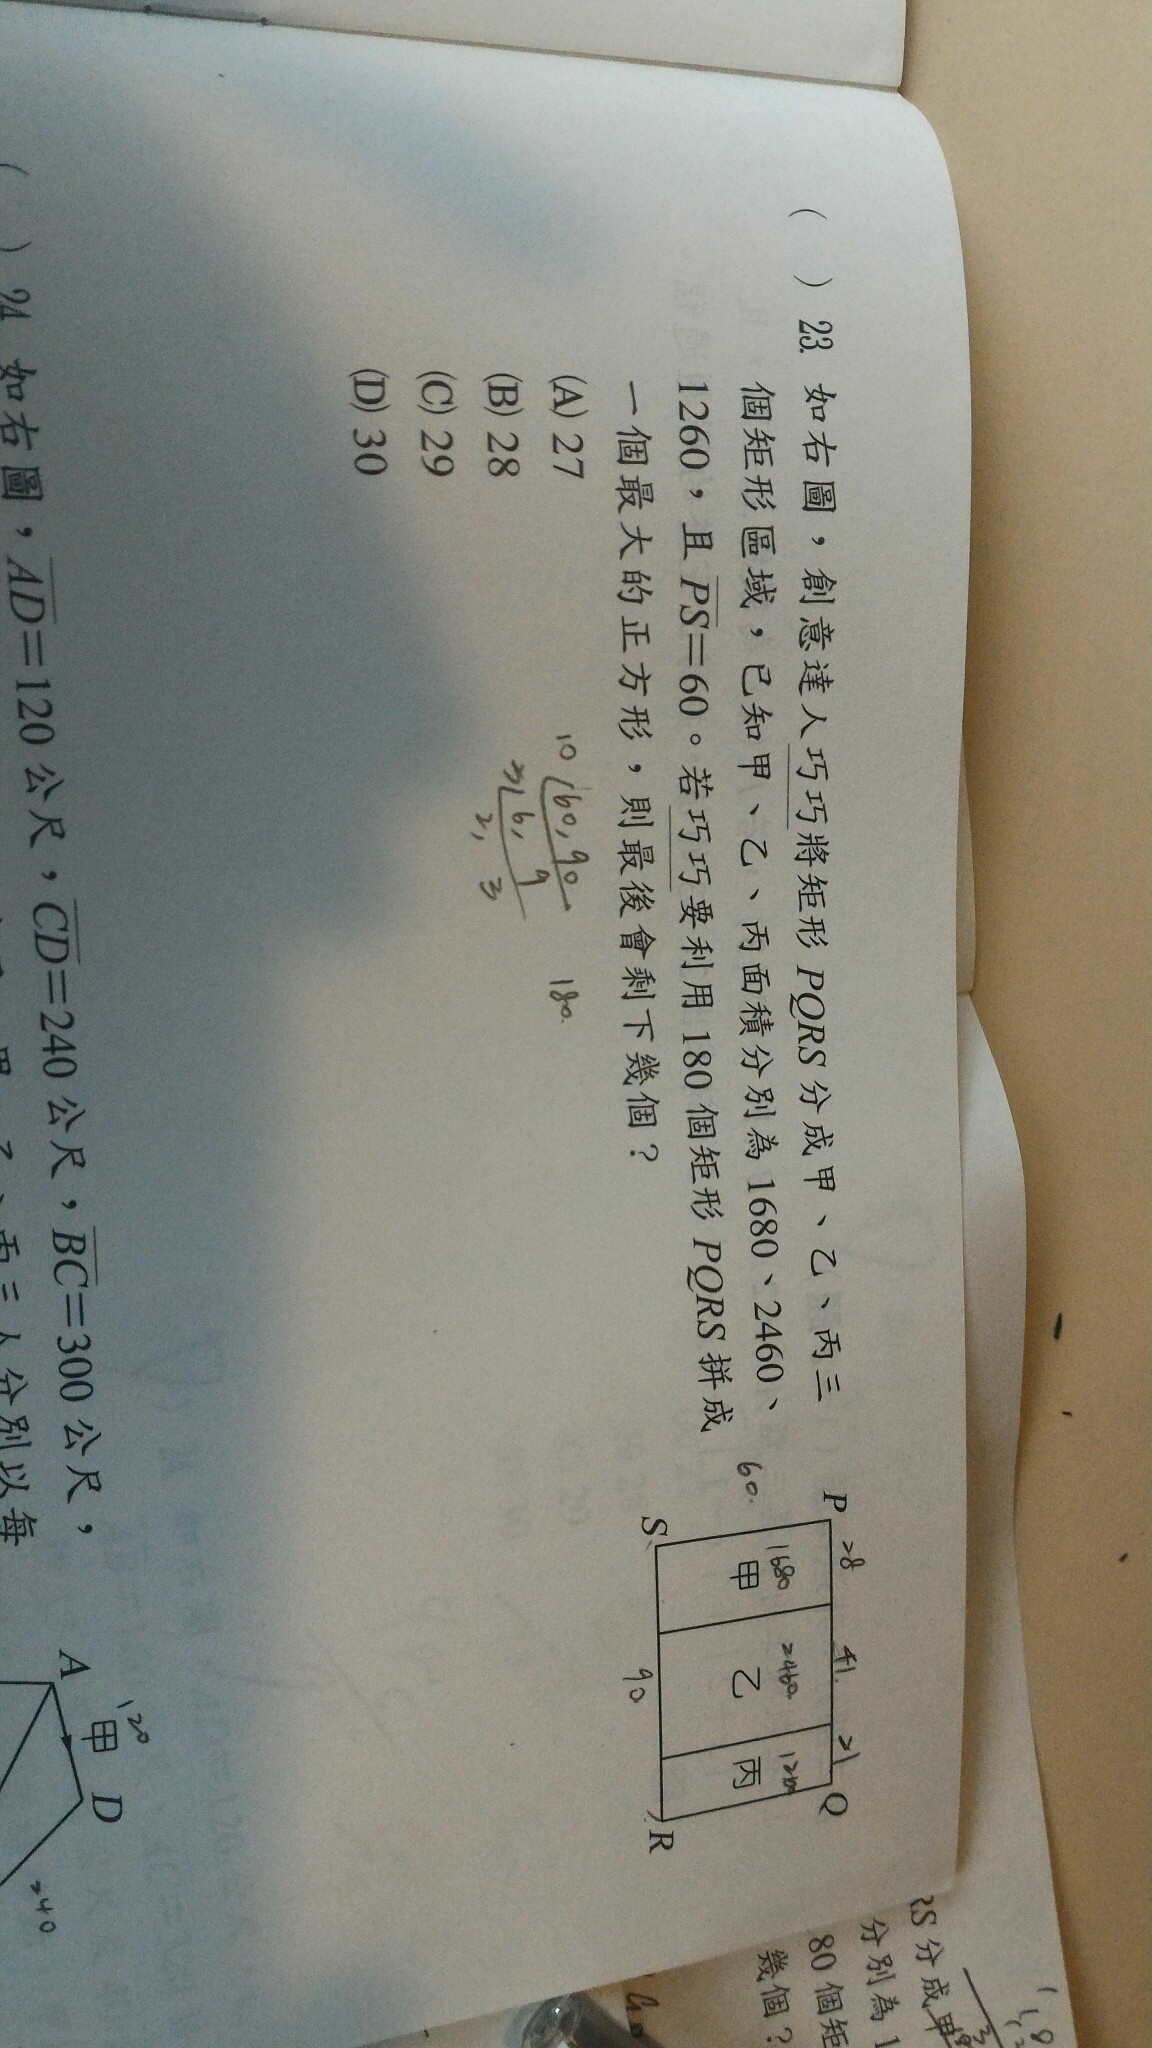 ( ) 23. 如右圖，創意達人巧巧將矩形 PQRS 分成甲、乙、丙三
個矩形區域，已知甲、乙、丙面積分別為 1680、2460、
1260，且 PS=60。若巧巧要利用 180 個矩形 PQRS 拼成
一個最大的正方形，則最後會剩下幾個？
(A) 27
(B) 28
(C) 29
(D) 30
10 60, 90
6, 9
2, 3
180.
P 28 41 21 Q
60.
1680 2460
甲 乙 丙
S R
90
( ) 24. 如右圖，AD=120 公尺，CD=240 公尺，BC=300 公尺，
人分別以每
A 120 甲 D
240
RS 分成甲
分別為 1
80 個矩
幾個？